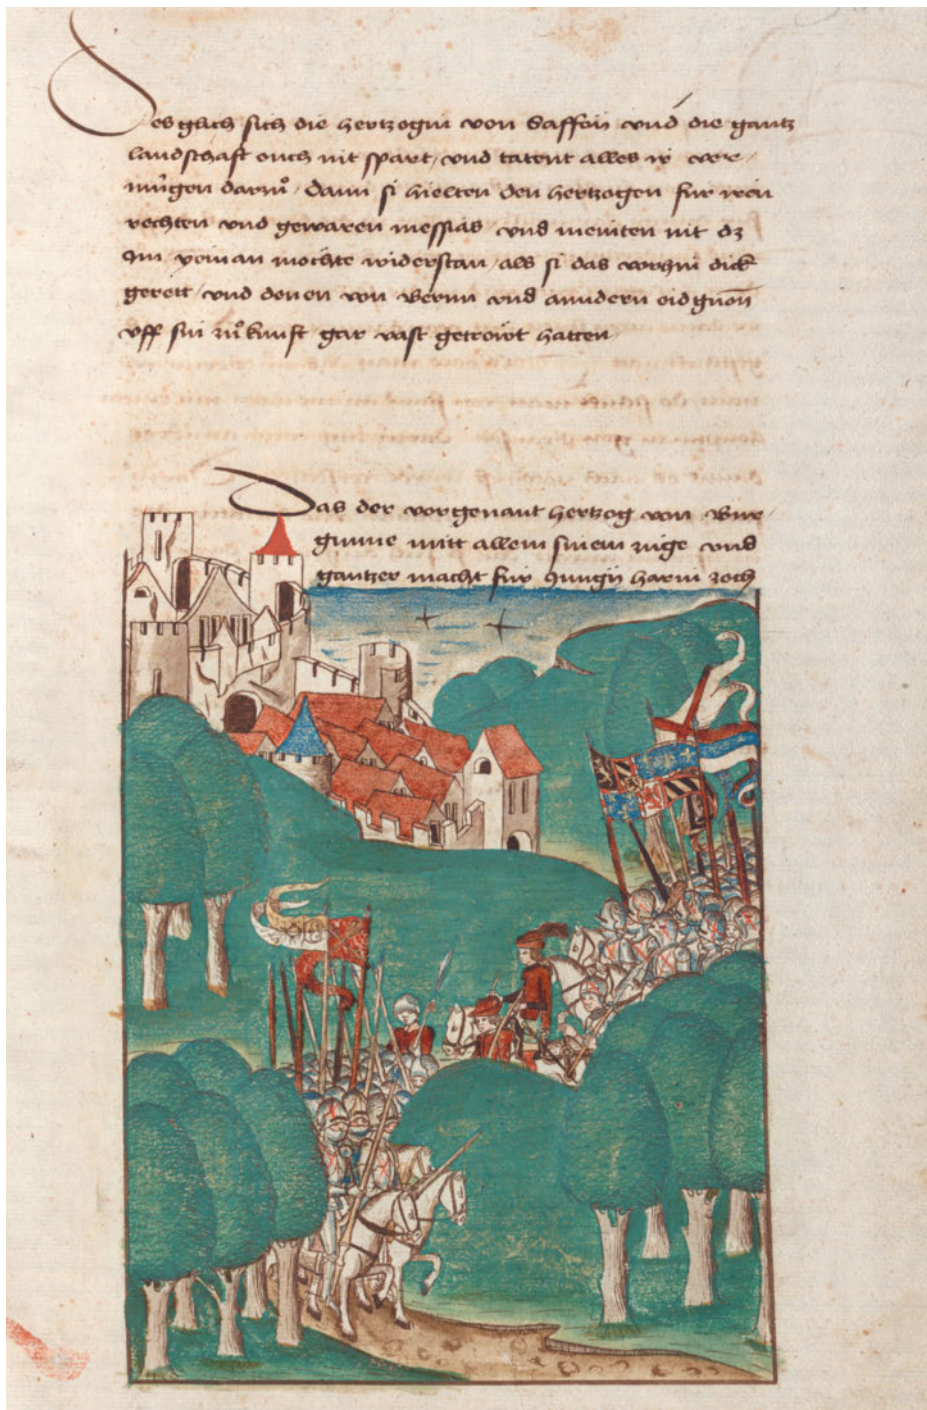 Des glich sich die hertzogin von Saffoÿ und die gantz
landschafft ouch nit spart / und tatent alles ir ver-
mu̍gen darzuͦ / dann si hielten den hertzogen fur iren
rechten und gewaren messias und meinten nit dz
Im yeman mo̍chte widerstan / als si das vorhin dick
gerett / und denen von Bernn und anndern eidgnoͤn
uff sin zuͦkunft gar vast getro̍wt hatten
Das der vorgenant hertzog von Bur-
gunne mitt allem sinem zu̍ge und
gantzer macht fur Jungÿ harin zoch